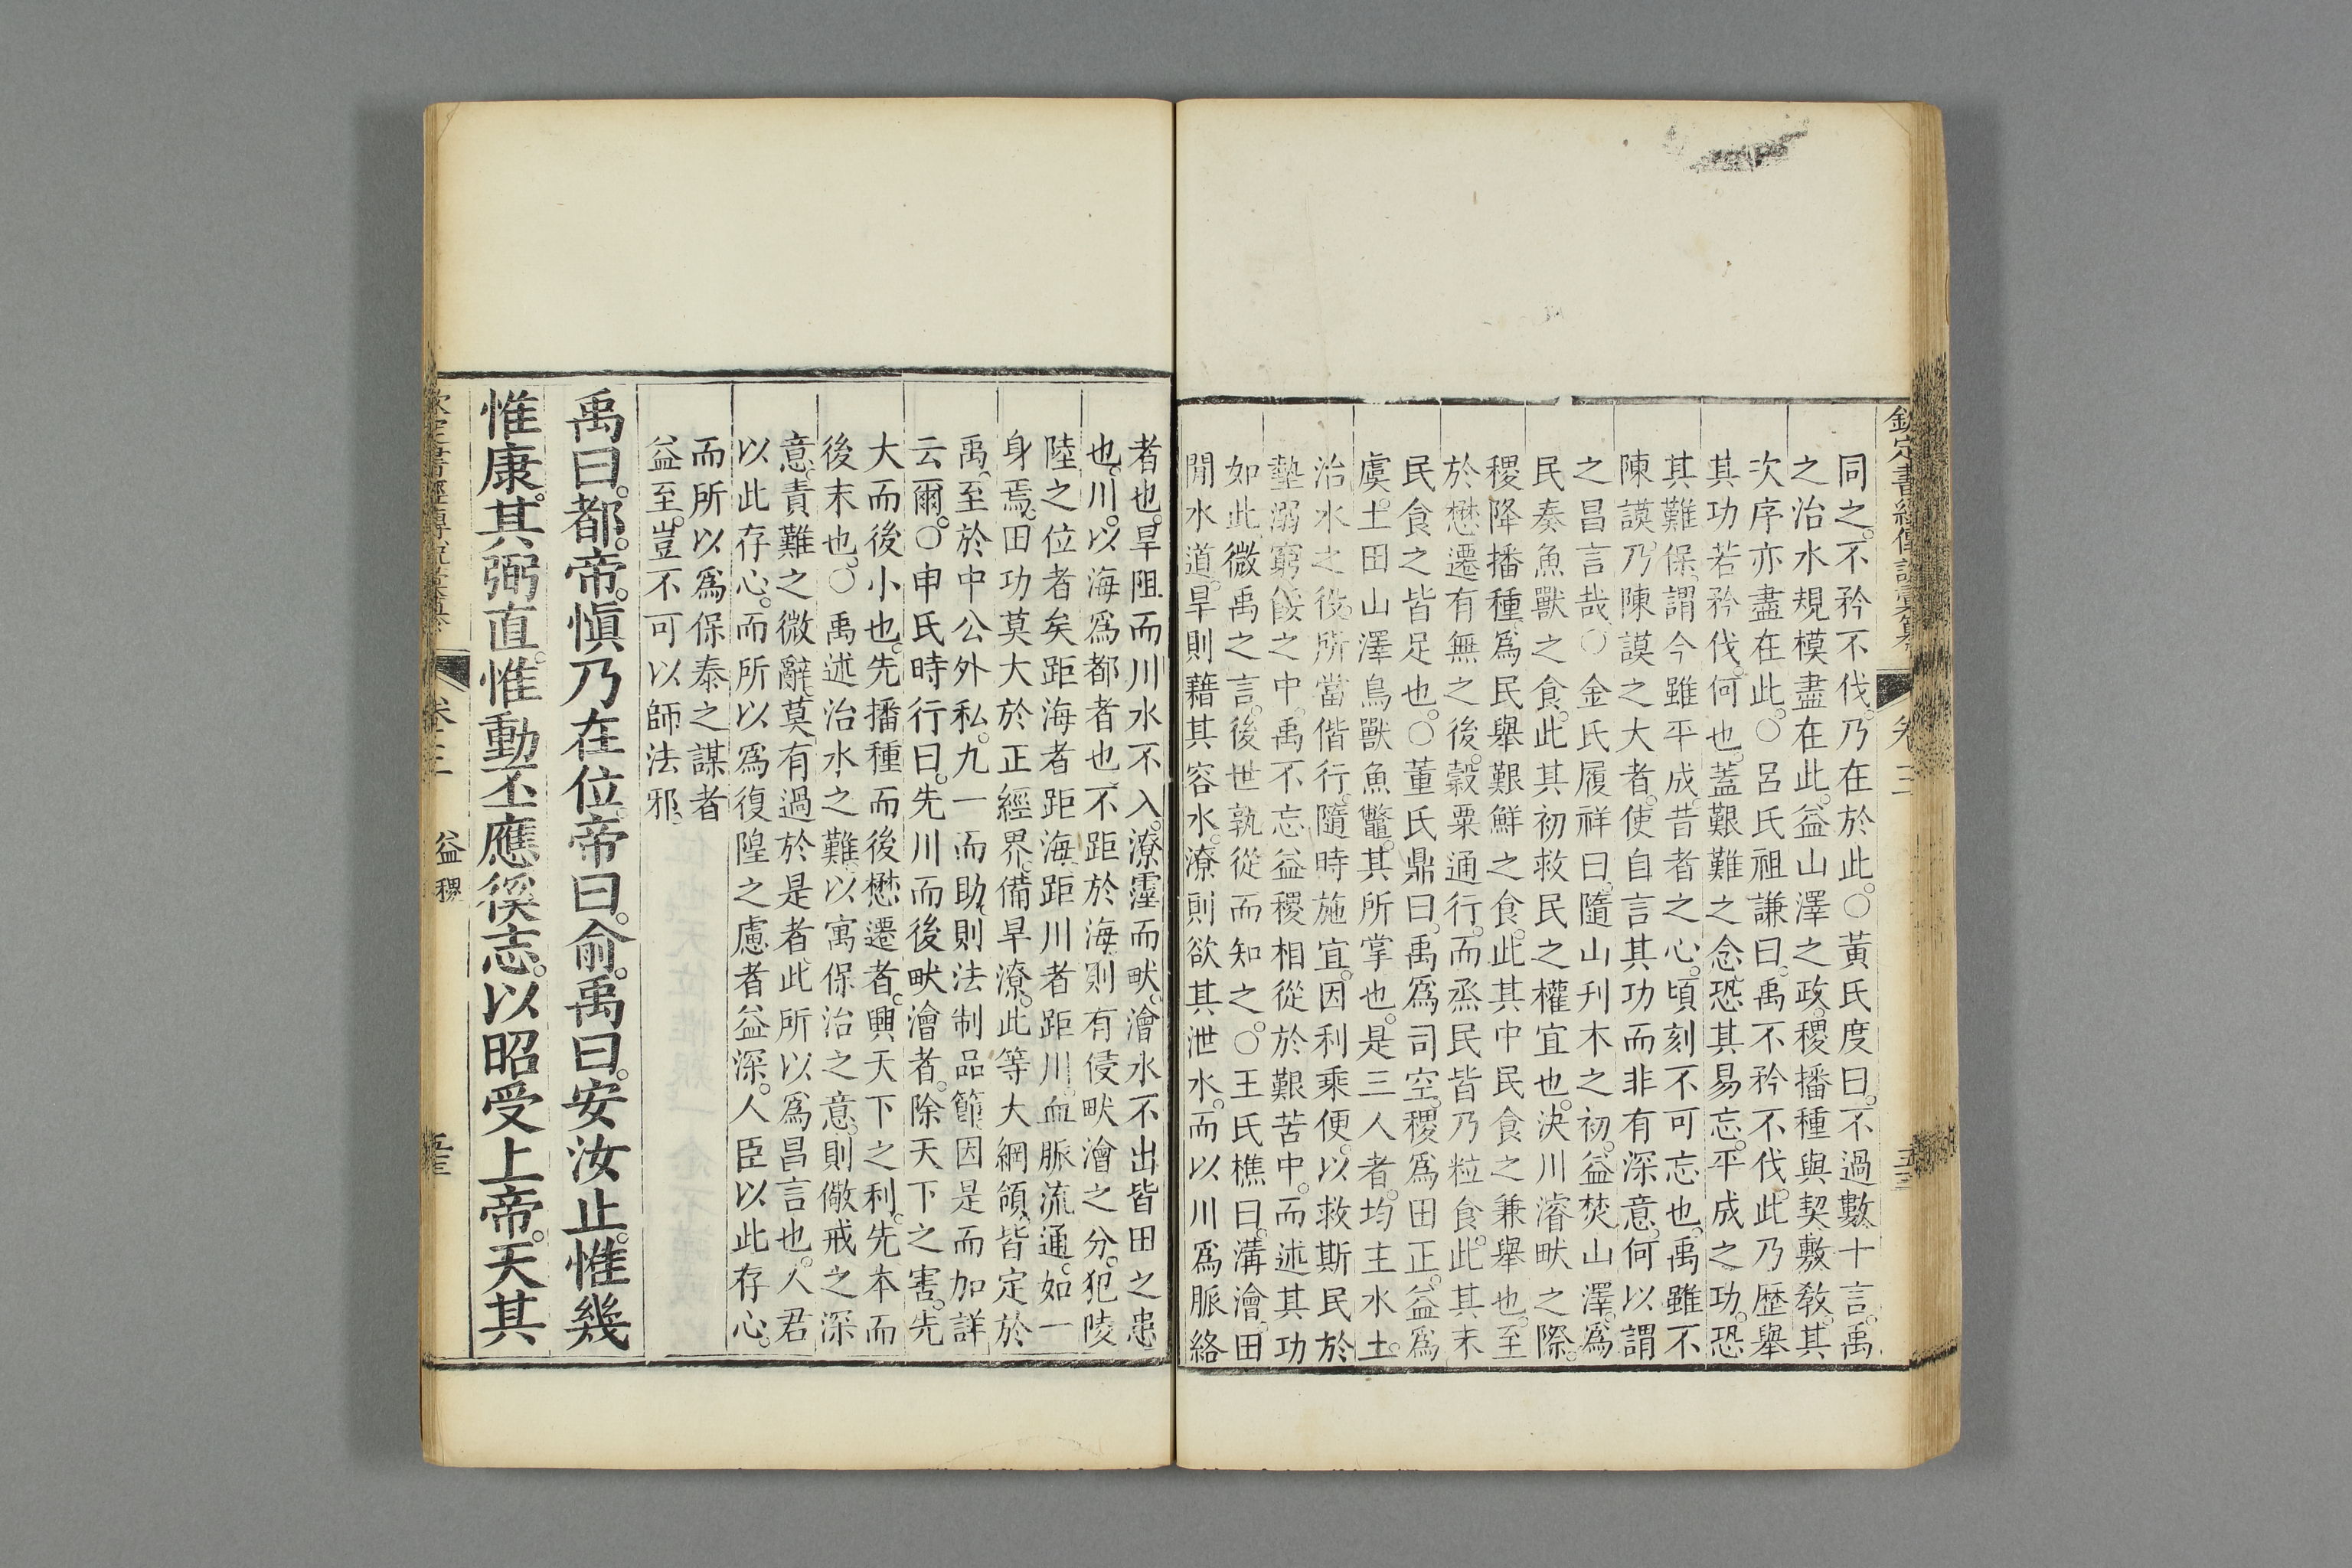 欽定書經傳說彙纂 卷三
同之。不矜不伐。乃在於此。○黃氏度曰。不過數十言。禹
之治水規模盡在此。益山澤之政。稷播種與契敷敎。其
次序亦盡在此。○呂氏祖謙曰。禹不矜不伐。此乃歷舉
其功若矜伐。何也。蓋艱難之念。恐其易忘。平成之功。恐
其難保。謂今雖平成。昔者之心。頃刻不可忘也。禹雖不
陳謨。乃陳謨之大者。使自言其功而非有深意。何以謂
之昌言哉。○金氏履祥曰。隨山刋木之初。益焚山澤。爲
民奏魚獸之食。此其初救民之權宜也。決川濬畎之際。
稷降播種。爲民舉艱鮮之食。此其中民食之兼舉也。至
於懋遷有無之後。穀粟通行。而烝民皆乃粒食。此其末
民食之皆足也。○董氏鼎曰。禹爲司空。稷爲田正。益爲
虞。土田山澤鳥獸魚鼈。其所掌也。是三人者。均主水土。
治水之役。所當偕行。隨時施宜。因利乘便。以救斯民於
墊溺窮餒之中。禹不忘益稷相從於艱苦中。而述其功
如此。微禹之言。後世孰從而知之。○王氏樵曰。溝澮。田
閒水道。旱則藉其容水。潦則欲其泄水。而以川爲脈絡
者也。旱阻而川水不入。潦霪而畎澮水不出。皆田之患
也。川。以海爲都者也。不距於海。則有侵畎澮之分。犯陵
陸之位者矣。距海者距海。距川者距川。血脈流通。如一
身焉。田功莫大於正經界。備旱潦。此等大綱領。皆定於
禹。至於中公外私。九一而助。則法制品節。因是而加詳
云爾。○申氏時行曰。先川而後畎澮者。除天下之害。先
大而後小也。先播種而後懋遷者。興天下之利。先本而
後末也。○禹述治水之難。以寓保治之意。則儆戒之深
意。責難之微辭。莫有過於是者。此所以爲昌言也。人君
以此存心。而所以爲復隍之慮者益深。人臣以此存心。
而所以爲保泰之謀者
益至。豈不可以師法邪。
禹曰。都。帝。愼乃在位。帝曰。俞。禹曰。安汝止。惟幾
惟康。其弼直。惟動丕應徯志。以昭受上帝。天其
卷三 益稷